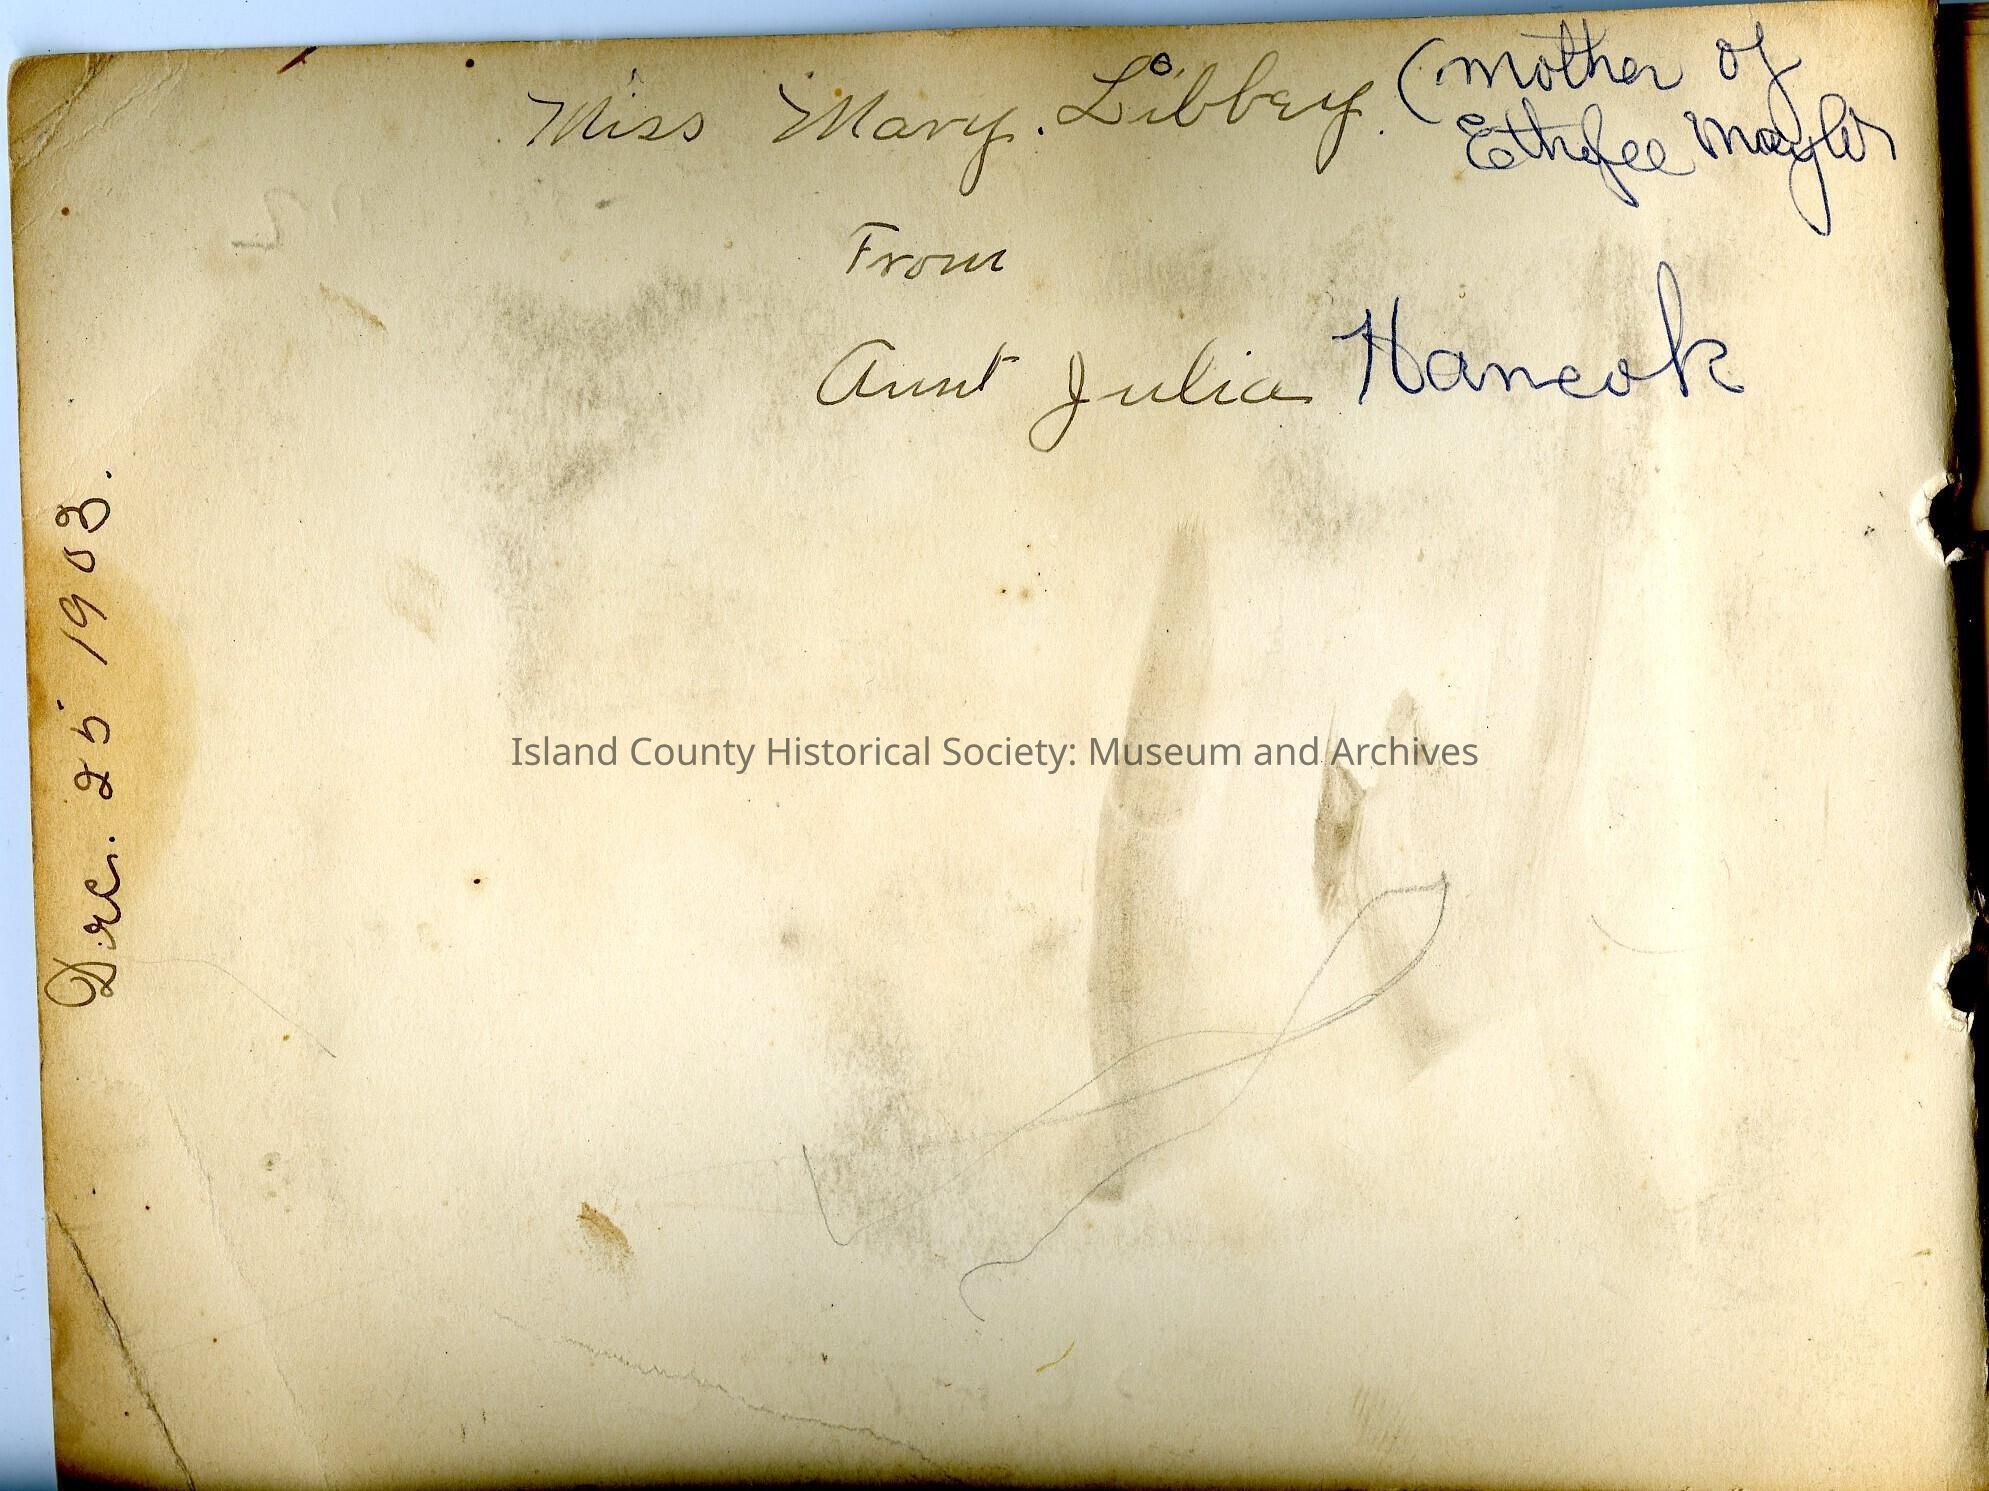 Miss Mary. Libbey. (mother of
Maylor
From
Aunt Julia Hancok
Dec. 25 1903.
Island County Historical Society: Museum and Archives